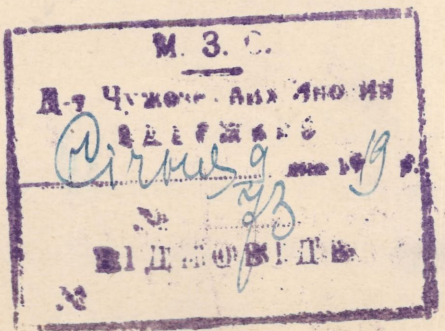 М. З. С.
Д-т Чужоземних Зносин
ОДЕРЖАНО
Січня 9 дня 1919 р.
№ 73
ВІДПОВІДЬ
№